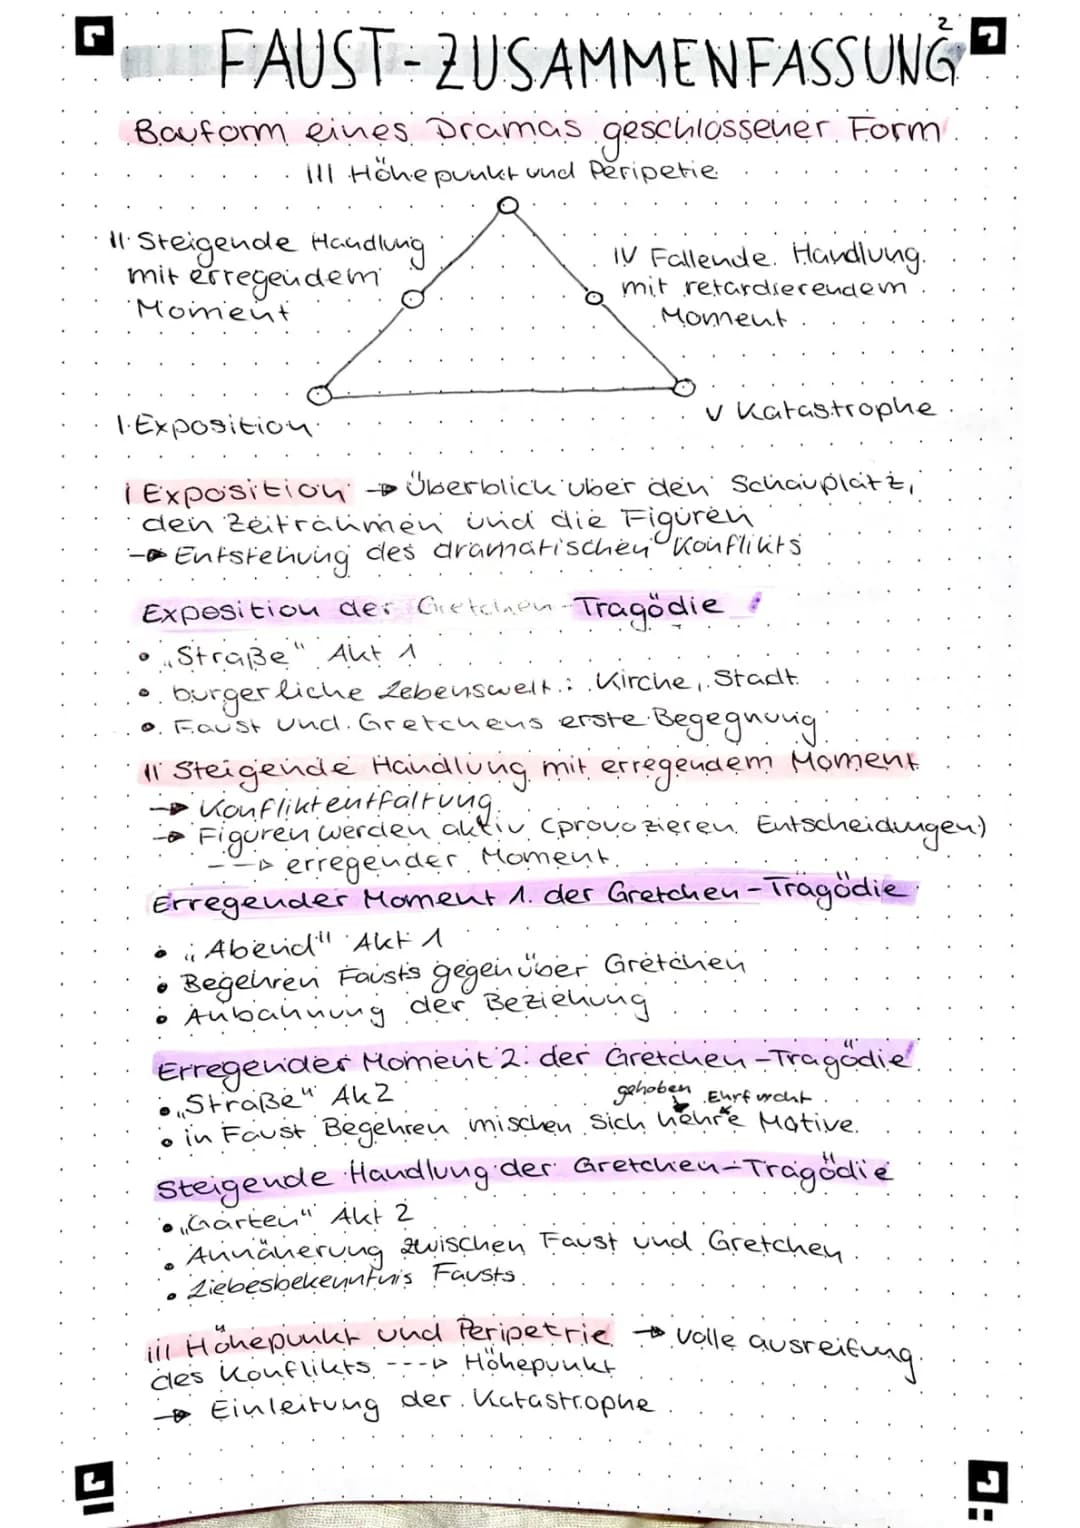 FAUST-ZUSAMMENFASSUNG 2
Bauform eines Dramas geschlossener Form
III Höhepunkt und Peripetie
II Steigende Handlung
mit erregendem
Moment
IV Fallende Handlung
mit retardierendem
Moment
I Exposition
V Katastrophe
I Exposition → Überblick über den Schauplatz,
den Zeitrahmen und die Figuren
→ Entstehung des dramatischen Konflikts
Exposition der Gretchen-Tragödie :
• „Straße" Akt 1
• bürgerliche Lebenswelt: Kirche, Stadt
• Faust und Gretchens erste Begegnung
II Steigende Handlung mit erregendem Moment
→ Konfliktentfaltung
→ Figuren werden aktiv (provozieren Entscheidungen)
--→ erregender Moment
Erregender Moment 1. der Gretchen-Tragödie
• „Abend" Akt 1
• Begehren Fausts gegenüber Gretchen
• Anbahnung der Beziehung
Erregender Moment 2. der Gretchen-Tragödie
• „Straße" Ak 2
gehoben Ehrfurcht
• in Faust Begehren mischen sich hehre Motive
Steigende Handlung der Gretchen-Tragödie
• „Garten" Akt 2
• Annäherung zwischen Faust und Gretchen
• Liebesbekenntnis Fausts
III Höhepunkt und Peripetrie → volle ausreifung
des Konflikts ---→ Höhepunkt
→ Einleitung der Katastrophe